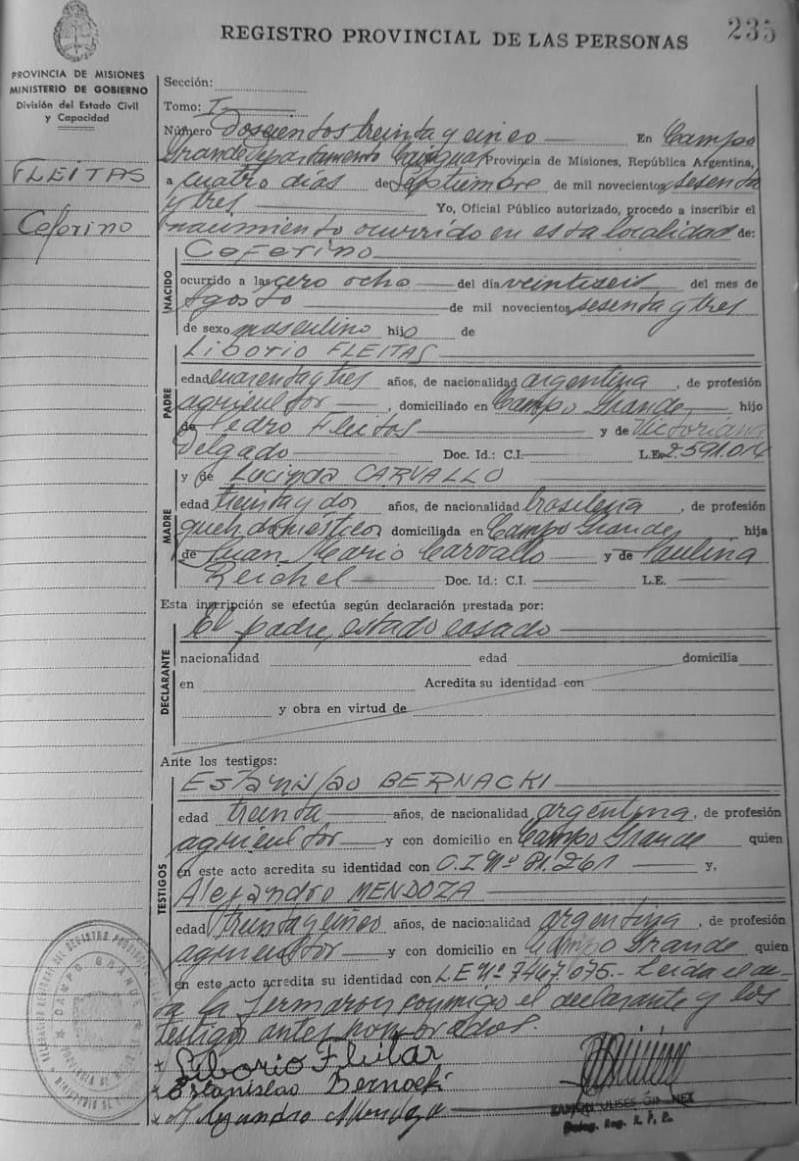 REGISTRO PROVINCIAL DE LAS PERSONAS
235
PROVINCIA DE MISIONES
MINISTERIO DE GOBIERNO
División del Estado Civil
y Capacidad
FLEITAS
Ceferino
Sección:
Tomo: I
Número Doscientos treinta y cinco En Campo
Grande Departamento Cainguas Provincia de Misiones, República Argentina,
a cuatro días de Septiembre de mil novecientos sesenta
y tres Yo, Oficial Público autorizado, procedo a inscribir el
nacimiento ocurrido en esta localidad de:
NACIDO
Ceferino
ocurrido a las cero ocho del día veintiseis del mes de
Agosto de mil novecientos sesenta y tres
de sexo masculino hijo de
PADRE
Liborio FLEITAS
edad cuarenta y tres años, de nacionalidad argentina, de profesión
agricultor, domiciliado en Campo Grande, hijo
de Pedro Fleitas y de Victoriana
Delgado Doc. Id.: C.I. L.E. 2.591.014
y de Lucinda CARVALLO
MADRE
edad treinta y dos años, de nacionalidad brasileña, de profesión
queh. domésticos domiciliada en Campo Grande, hija
de Juan Mario Carvallo y de Paulina
Reichel Doc. Id.: C.I. L.E.
Esta inscripción se efectúa según declaración prestada por:
DECLARANTE
El padre, estado casado
nacionalidad edad domicilia
en Acredita su identidad con
y obra en virtud de
Ante los testigos:
TESTIGOS
Estanislao BERNACKI
edad treinta años, de nacionalidad argentina, de profesión
agricultor y con domicilio en Campo Grande quien
en este acto acredita su identidad con C.I Nº 81.261 y,
Alejandro MENDOZA
edad treinta y cinco años, de nacionalidad argentina, de profesión
agricultor y con domicilio en Campo Grande quien
en este acto acredita su identidad con L.E Nº 7.467.075.- Leída el ac-
ta la firmaron conmigo el declarante y los
testigos antes nombrados.
Liborio Fleitas
Estanislao Bernacki
Alejandro Mendoza
RAMON ULISES GIMENEZ
Deleg. Reg. R. P. P.
CAMPO GRANDE